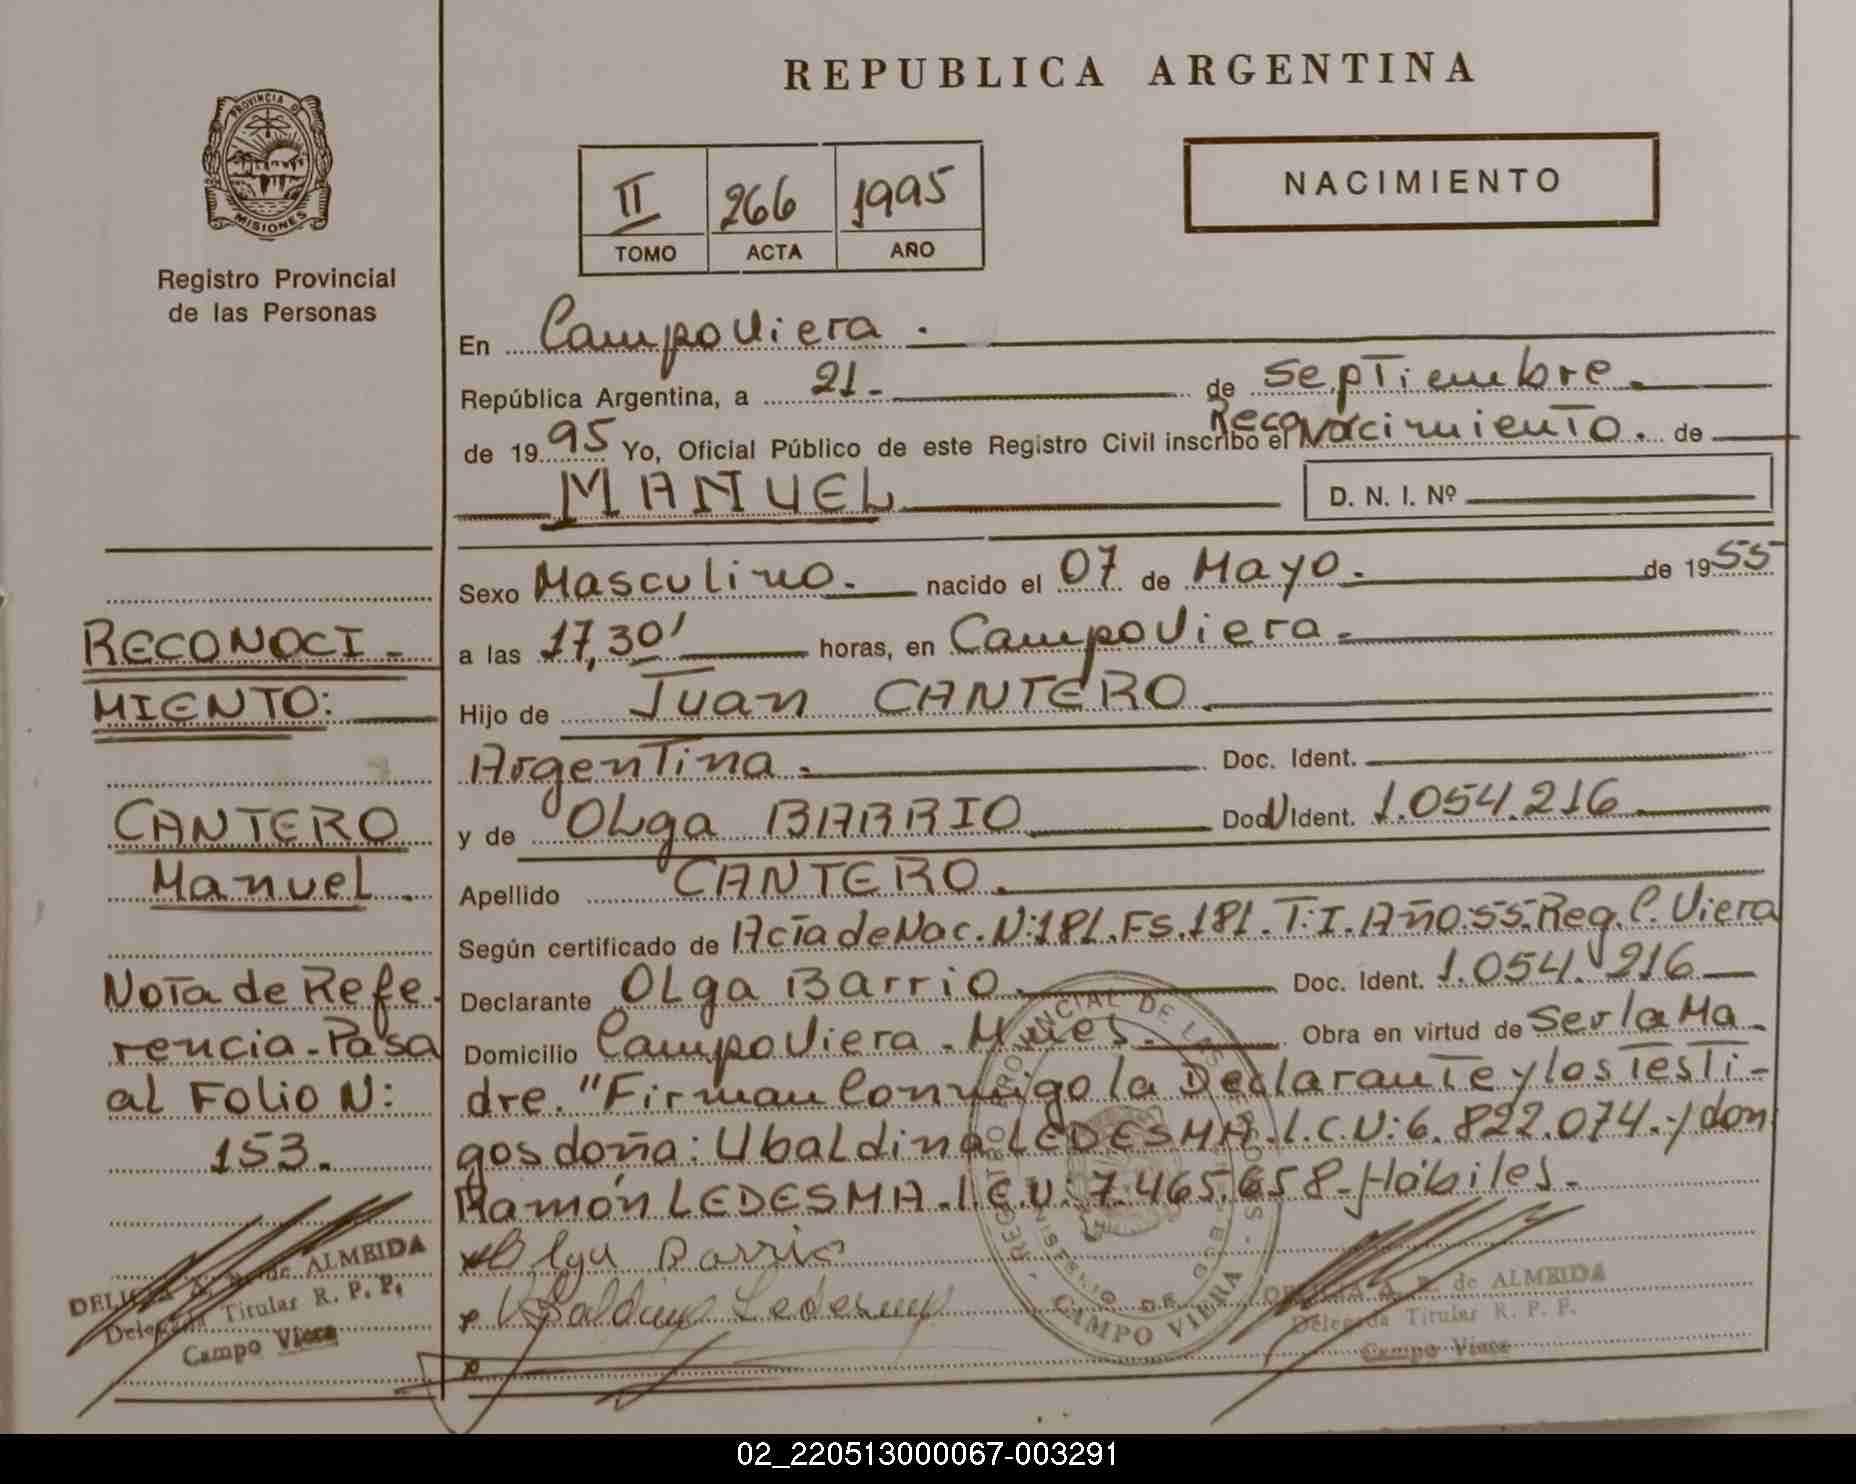 REPUBLICA ARGENTINA
PROVINCIA DE
MISIONES
Registro Provincial
de las Personas
II 266 1995
TOMO ACTA AÑO
NACIMIENTO
En Campo Viera.
República Argentina, a 21. de Septiembre.
de 1995 Yo, Oficial Público de este Registro Civil inscribo el Reconocimiento. de
MANUEL D. N. I. Nº
Sexo Masculino. nacido el 07 de Mayo. de 1955
a las 17,30' horas, en Campo Viera.
Hijo de Juan CANTERO
Argentina. Doc. Ident.
y de OLga BARRIO Doc. Ident. 1.054.216
Apellido CANTERO.
Según certificado de Acta de Nac. N:181. Fs. 181. T:I. Año:55. Reg. C. Viera
Declarante OLga Barrio. Doc. Ident. 1.054.216
Domicilio Campo Viera - Mnes. Obra en virtud de Ser la Ma-
dre. "Firman Conmigo la Declarante y los Testi-
gos doña: Ubaldina LEDESMA. L.C.N: 6.822.074.-y don
Ramón LEDESMA. L.E.N: 7.465.658-Hábiles.
RECONOCI-
MIENTO:
CANTERO
Manuel.
Nota de Refe-
rencia-Pasa
al Folio N:
153.
Olga Barrio
Ubaldina Ledesma
REGISTRO PROVINCIAL DE LAS PERSONAS
CAMPO VIERA
DELICIA A. de ALMEIDA
Delegada Titular R. P. P.
Campo Viera
DELICIA A. R. de ALMEIDA
Delegada Titular R. P. P.
Campo Viera
02_220513000067-003291